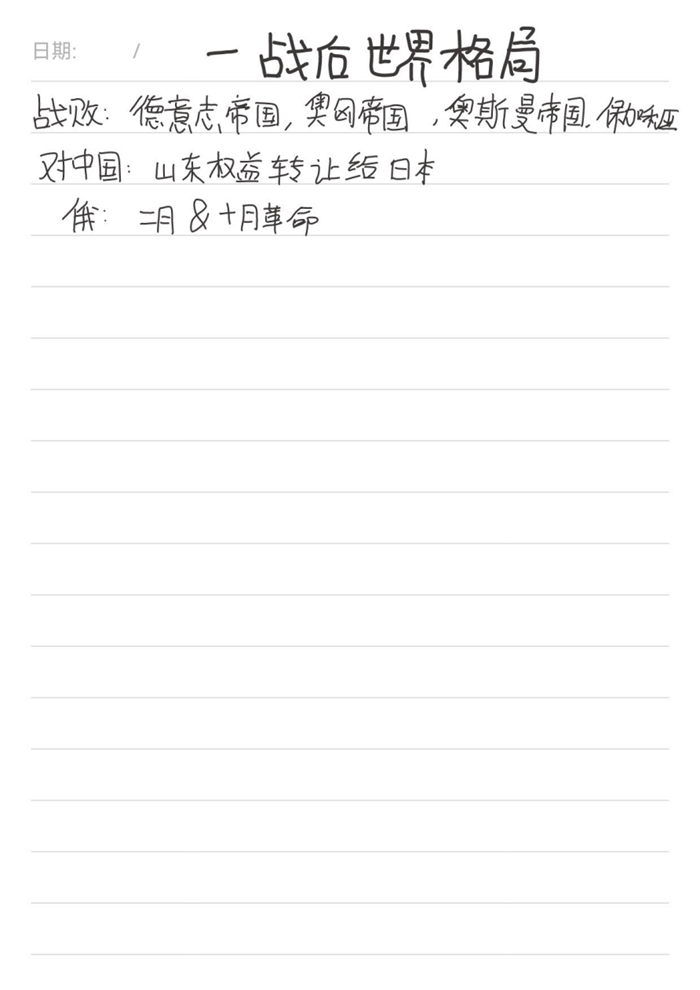 日期: /
一战后世界格局
战败：德意志帝国，奥匈帝国，奥斯曼帝国，保加利亚
对中国：山东权益转让给日本
俄：二月 & 十月革命